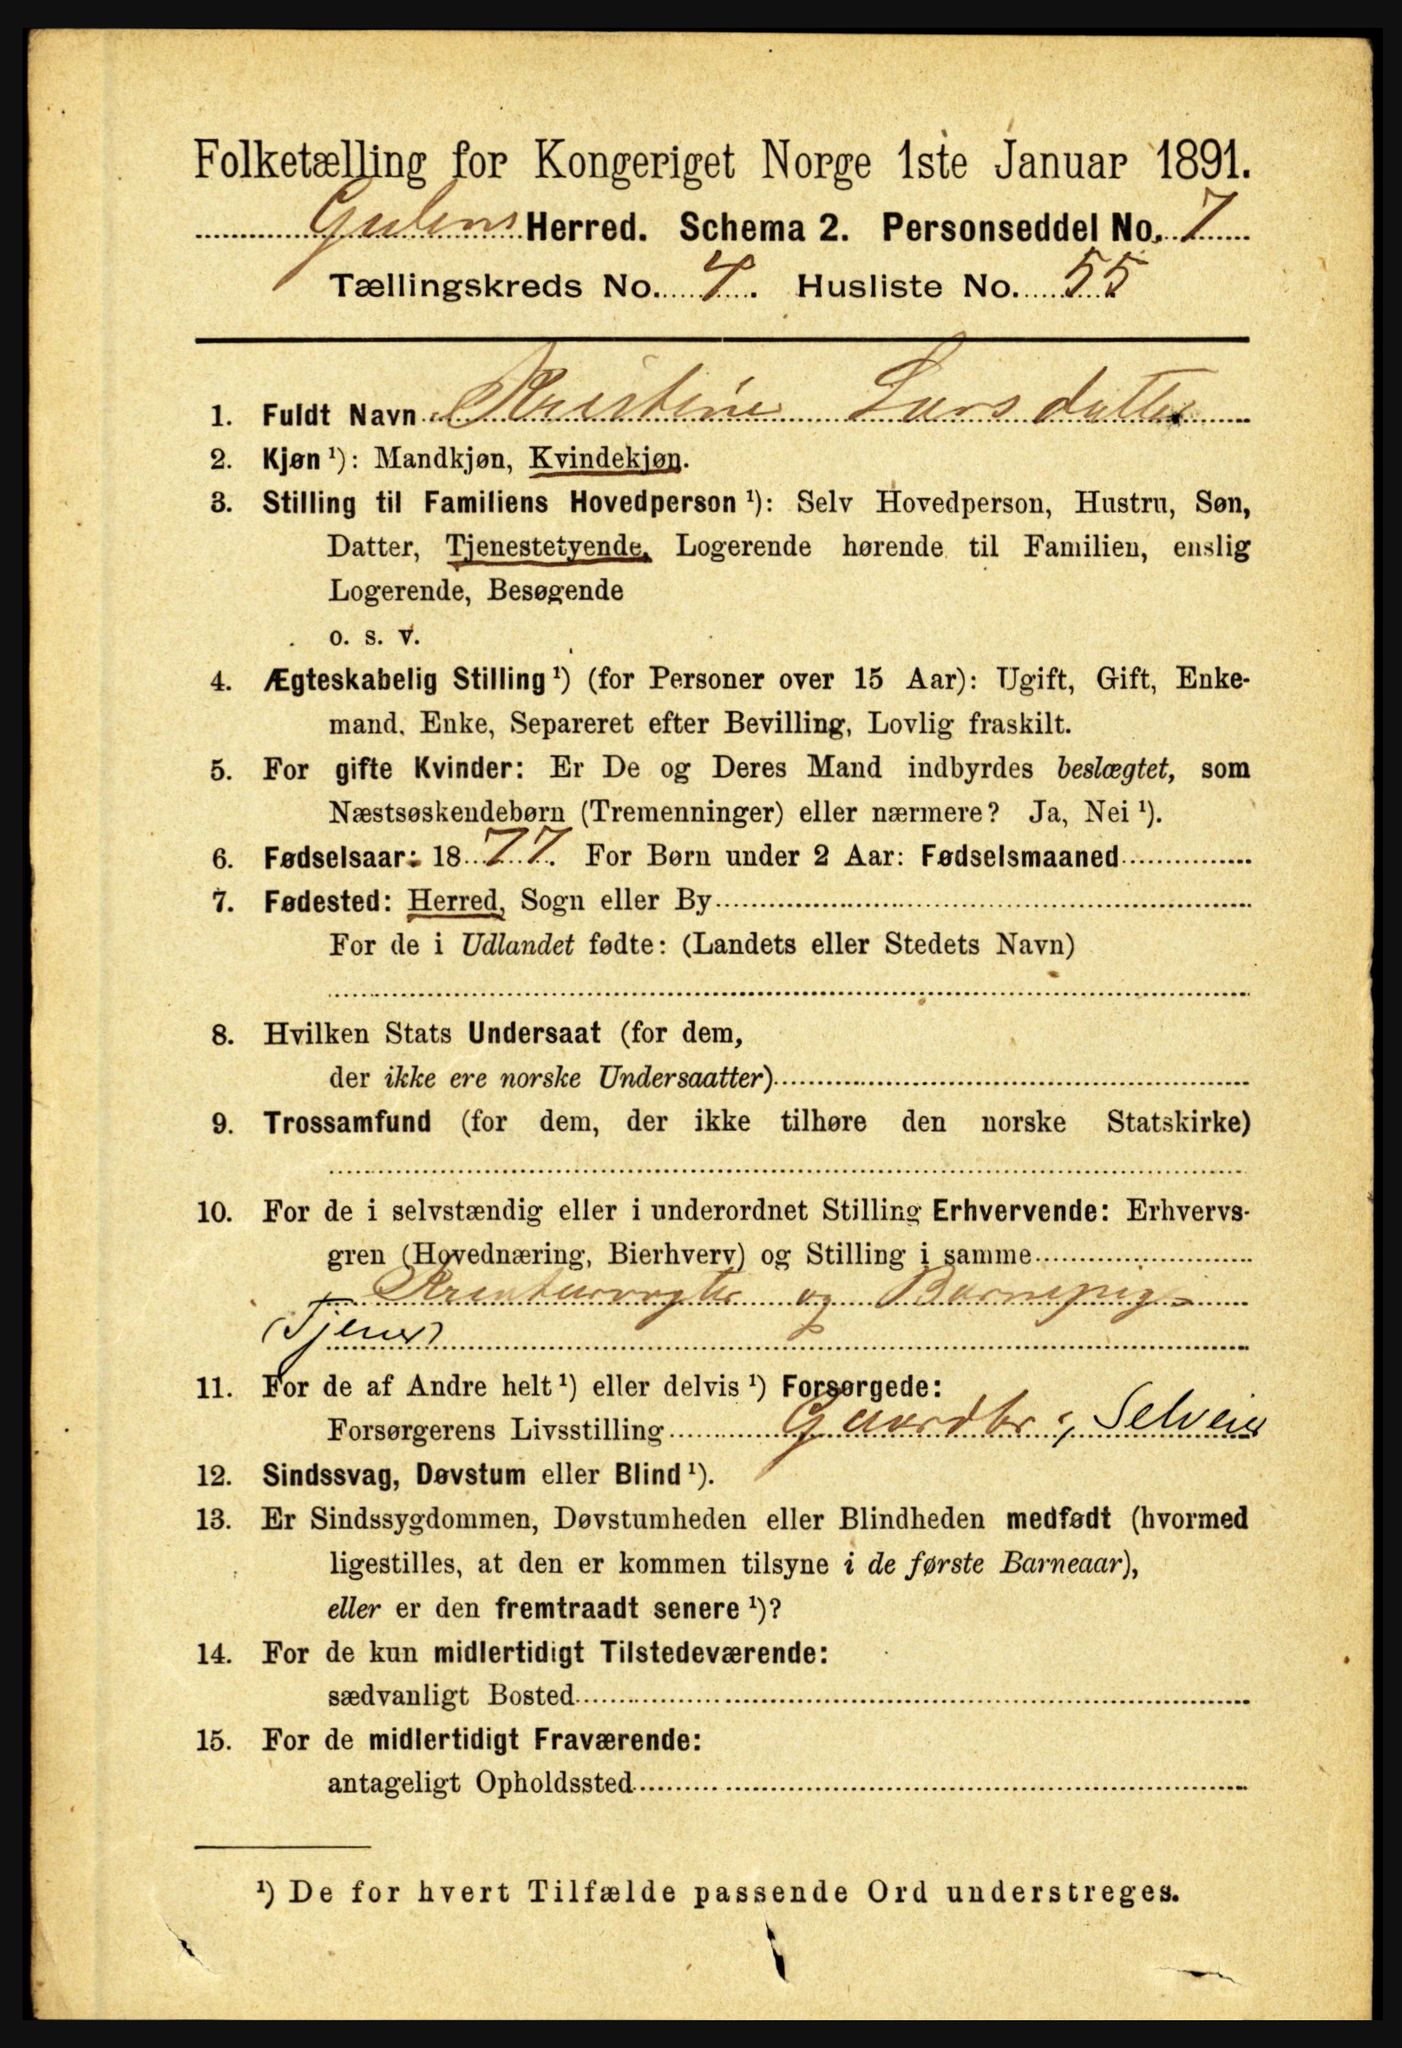 Folketælling for Kongeriget Norge 1ste Januar 1891.
Gulens Herred. Schema 2. Personseddel No. 7
Tællingskreds No. 4. Husliste No. 55
1. Fuldt Navn Kristine Larsdatter
2. Kjøn ¹): Mandkjøn, Kvindekjøn.
3. Stilling til Familiens Hovedperson ¹): Selv Hovedperson, Hustru, Søn,
Datter, Tjenestetyende, Logerende hørende til Familien, enslig
Logerende, Besøgende
o. s. v.
4. Ægteskabelig Stilling ¹) (for Personer over 15 Aar): Ugift, Gift, Enke-
mand, Enke, Separeret efter Bevilling, Lovlig fraskilt.
5. For gifte Kvinder: Er De og Deres Mand indbyrdes beslægtet, som
Næstsøskendebørn (Tremenninger) eller nærmere? Ja, Nei ¹).
6. Fødselsaar: 1877. For Børn under 2 Aar: Fødselsmaaned
7. Fødested: Herred, Sogn eller By
For de i Udlandet fødte: (Landets eller Stedets Navn)
8. Hvilken Stats Undersaat (for dem,
der ikke ere norske Undersaatter)
9. Trossamfund (for dem, der ikke tilhøre den norske Statskirke)
10. For de i selvstændig eller i underordnet Stilling Erhvervende: Erhvervs-
gren (Hovednæring, Bierhverv) og Stilling i samme
Kreaturvogter og Barnepige
(Tjener)
11. For de af Andre helt ¹) eller delvis ¹) Forsørgede:
Forsørgerens Livsstilling Gaardbr:, Selveier
12. Sindssvag, Døvstum eller Blind ¹).
13. Er Sindssygdommen, Døvstumheden eller Blindheden medfødt (hvormed
ligestilles, at den er kommen tilsyne i de første Barneaar),
eller er den fremtraadt senere ¹)?
14. For de kun midlertidigt Tilstedeværende:
sædvanligt Bosted
15. For de midlertidigt Fraværende:
antageligt Opholdssted
¹) De for hvert Tilfælde passende Ord understreges.